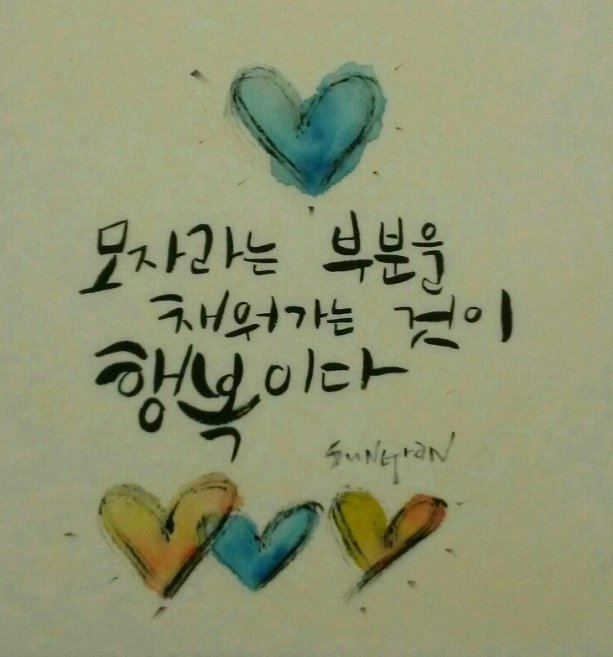 모자라는 부분을
채워가는 것이
행복이다
SUNgraN